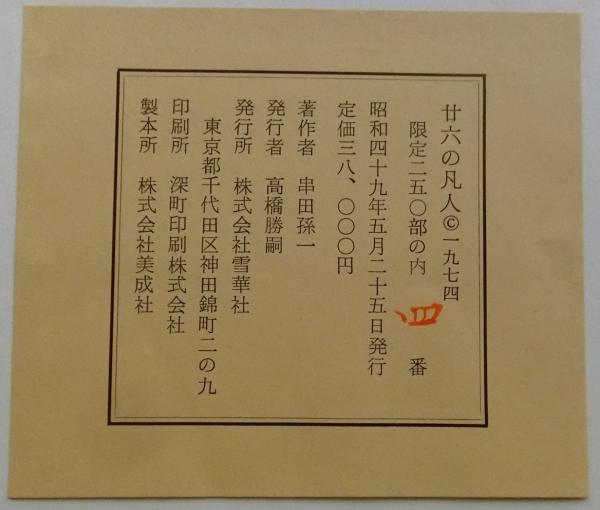 廿六の凡人©一九七四
限定二五〇部の内 四 番
昭和四十九年五月二十五日発行
定価三八、〇〇〇円
著作者 串田孫一
発行者 高橋勝嗣
発行所 株式会社雪華社
東京都千代田区神田錦町二の九
印刷所 深町印刷株式会社
製本所 株式会社美成社